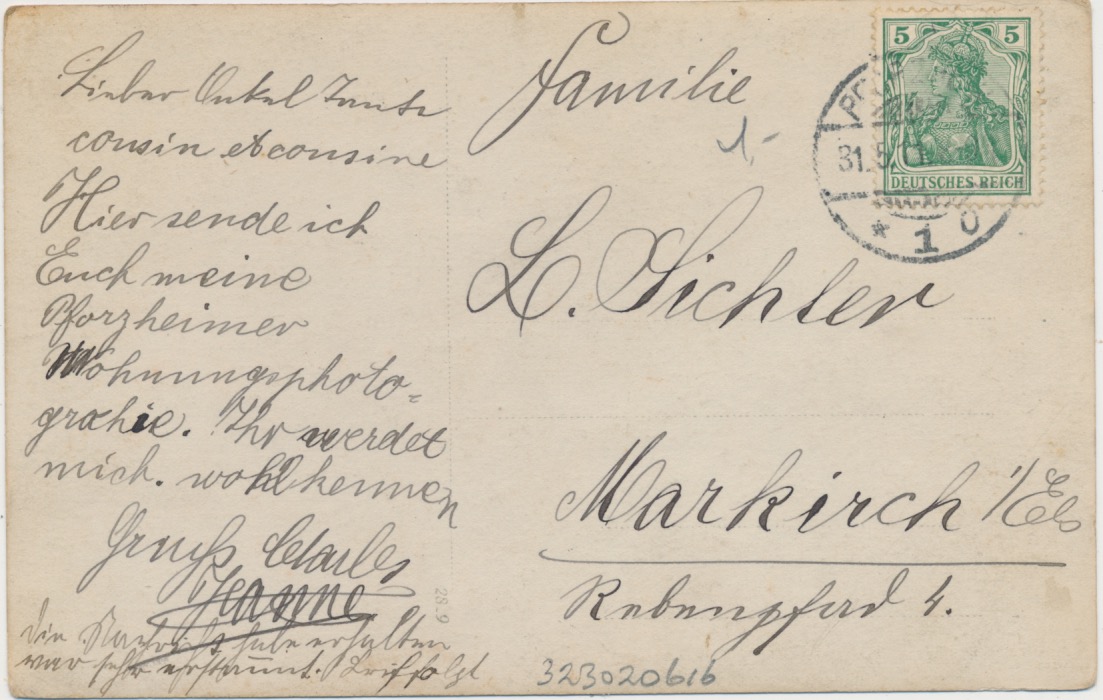 Lieber Onkel Tante
cousin et cousine
Hier sende ich
Euch meine
Pforzheimer
Wohnungsphoto=
graphie. Ihr werdet
mich. wohl kennen
Gruß Charles
Jeanne
die Nachricht habe erhalten
war sehr erstaunt. Brief folgt
Familie
L. Sichler
Markirch i/Els
Rebenpfad 4.
1,-
5 5
DEUTSCHES REICH
31.5.
* 1 0
28.9
323020616